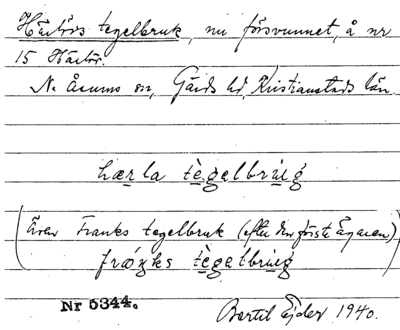 Härlövs tegelbruk, nu försvunnet, å nr
15 Härlöv.
N. Åsums sn, Gärds hd, Kristianstads län.
hærla tègalbrùig
(Även Franks tegelbruk (efter den förste ägaren)
tègalbrùig)
Nr 5344.
Bertil Ejder 1940.